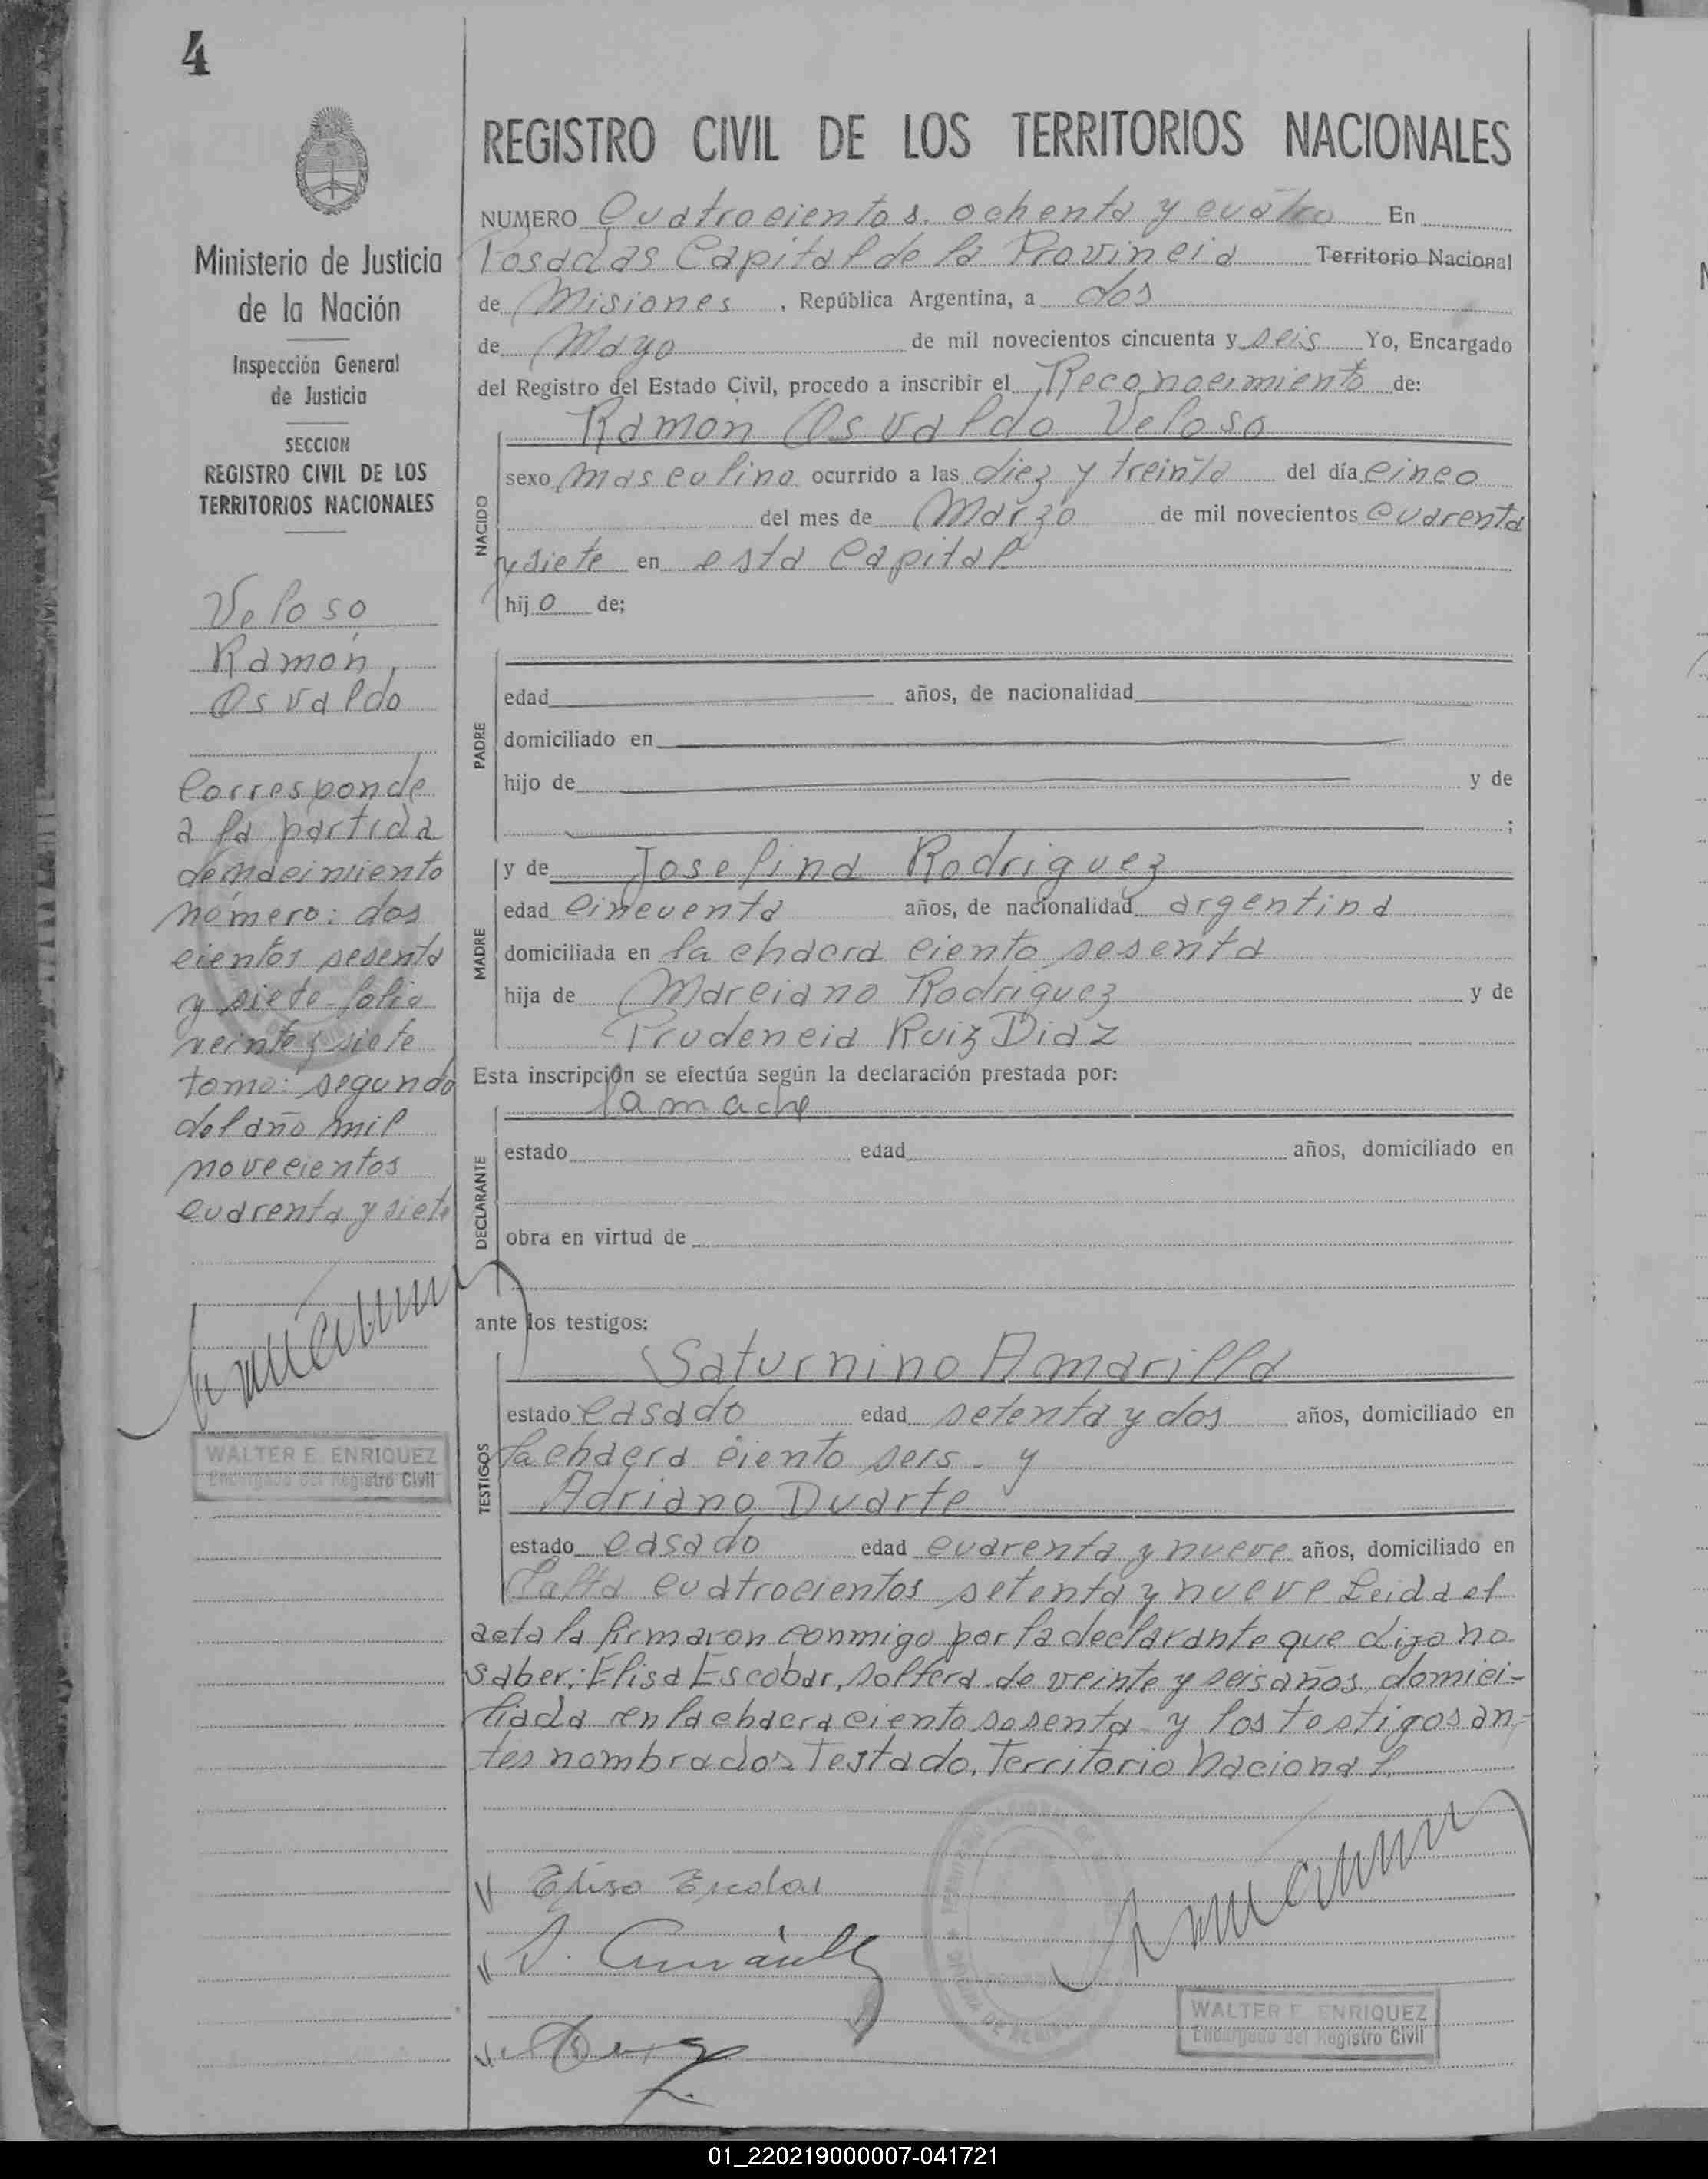 4
Ministerio de Justicia
de la Nación
Inspección General
de Justicia
SECCION
REGISTRO CIVIL DE LOS
TERRITORIOS NACIONALES
Veloso
Ramón
Osvaldo
Corresponde
a la partida
de nacimiento
número: dos
cientos sesenta
y siete folio
veinte y siete
tomo: segundo
del año mil
novecientos
cuarenta y siete
WALTER E. ENRIQUEZ
Encargado del Registro Civil
REGISTRO CIVIL DE LOS TERRITORIOS NACIONALES
NUMERO Cuatrocientos ochenta y cuatro En
Posadas Capital de la Provincia Territorio Nacional
de Misiones, República Argentina, a dos
de Mayo de mil novecientos cincuenta y seis Yo, Encargado
del Registro del Estado Civil, procedo a inscribir el Reconocimiento de:
Ramón Osvaldo Veloso
NACIDO
sexo masculino ocurrido a las diez y treinta del día cinco
del mes de Marzo de mil novecientos cuarenta
y siete en esta Capital
hijo de;
PADRE
edad años, de nacionalidad
domiciliado en
hijo de y de
;
MADRE
y de Josefina Rodriguez
edad cincuenta años, de nacionalidad argentina
domiciliada en la chacra ciento sesenta
hija de Marciano Rodriguez y de
Prudencia Ruiz Diaz
Esta inscripción se efectúa según la declaración prestada por:
la madre
DECLARANTE
estado edad años, domiciliado en
obra en virtud de
ante los testigos:
TESTIGOS
Saturnino Amarilla
estado casado edad setenta y dos años, domiciliado en
la chacra ciento seis y
Adriano Duarte
estado casado edad cuarenta y nueve años, domiciliado en
Salta cuatrocientos setenta y nueve Leida el
acta la firmaron conmigo por la declarante que dijo no
saber: Elisa Escobar, soltera de veinte y seis años, domici-
liada en la chacra ciento sesenta y los testigos an-
tes nombrados Testado, Territorio Nacional.
Elisa Escobar
WALTER E. ENRIQUEZ
Encargado del Registro Civil
01_220219000007-041721